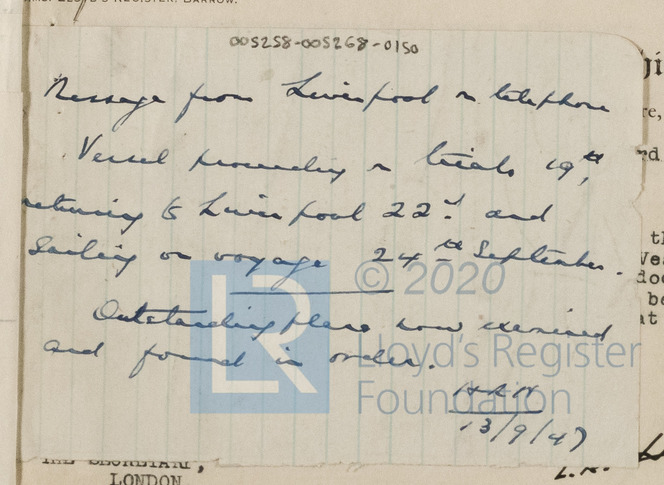 LLOYD'S REGISTER, BARROW.
005258-005268-0150
Message from Liverpool on telephone
Vessel proceeding on trials 19th,
returning to Liverpool 22nd and
Sailing on voyage 24th September.
© 2020
LR
Outstanding plans now examined
and found in order.
Lloyd's Register
Foundation
13/9/47
THE SECRETARY,
LONDON